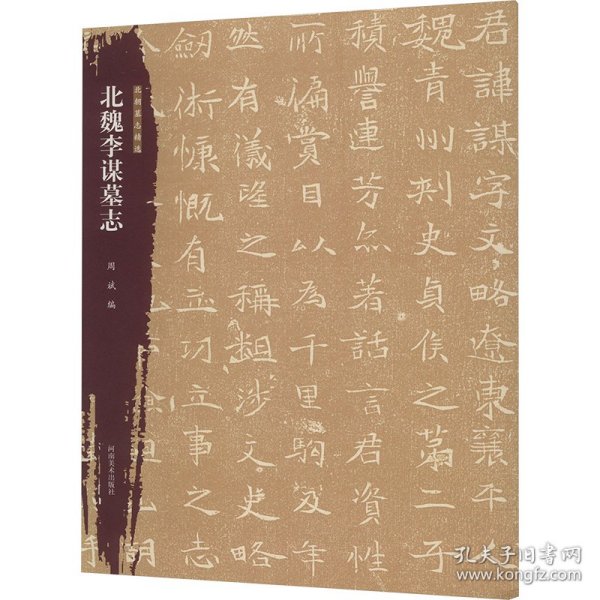 君諱謀字文略遼東襄平人
魏青州刺史貞侯之第二子
積譽連芳点著話言君資性
所徧賞目以為千里駒及年
然有儀望之稱粗涉文史略
劒術慷慨有立功立事之志
北朝墓志精选
北魏李谋墓志
周斌 编
河南美术出版社
孔夫子旧书网
www.kongfz.com